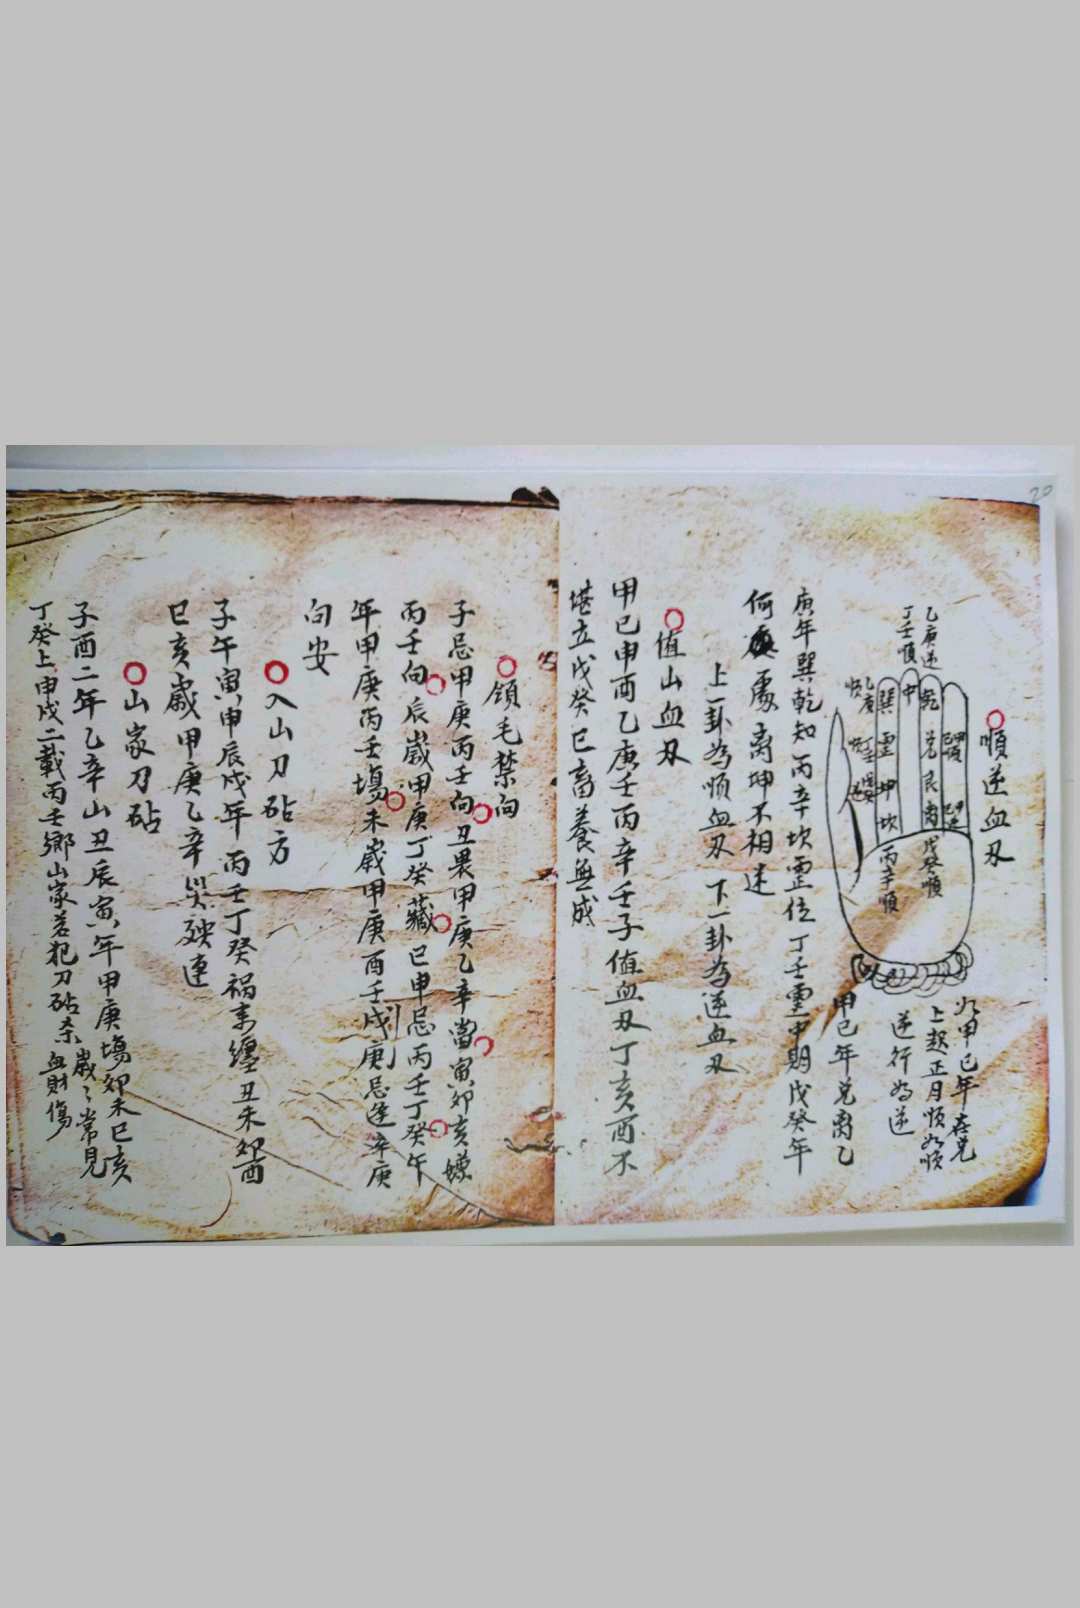 20
順逆血刃
乙庚逆
丁壬順
乾 兌 艮 离
中
巽 震 坤 坎
戊癸順
丙辛順
凡甲已年在兌
上起正月順為順
逆行為逆
甲已年兌离乙
庚年巽乾知丙辛坎震位丁壬震中期戊癸年
何處离坤不相迷
上一卦為順血刃 下一卦為逆血刃
值山血刃
甲已申酉乙庚壬丙辛壬子值血刃丁亥酉不
堪立戊癸巳畜養無成
領毛禁向
子忌甲庚丙壬向丑畏甲庚乙辛當寅卯亥嫌
丙壬向辰歲甲庚丁癸藏巳申忌丙壬丁癸午
年甲庚丙壬塲未歲甲庚酉壬戌庚忌逢辛庚
向安
入山刀砧方
子午寅申辰戌年丙壬丁癸禍來纏丑未卯酉
巳亥歲甲庚乙辛災殃連
山家刀砧
子酉二年乙辛山丑辰寅年甲庚塲卯未巳亥
丁癸上申戌二載丙壬鄉山家若犯刀砧杀
歲々常見
血財傷